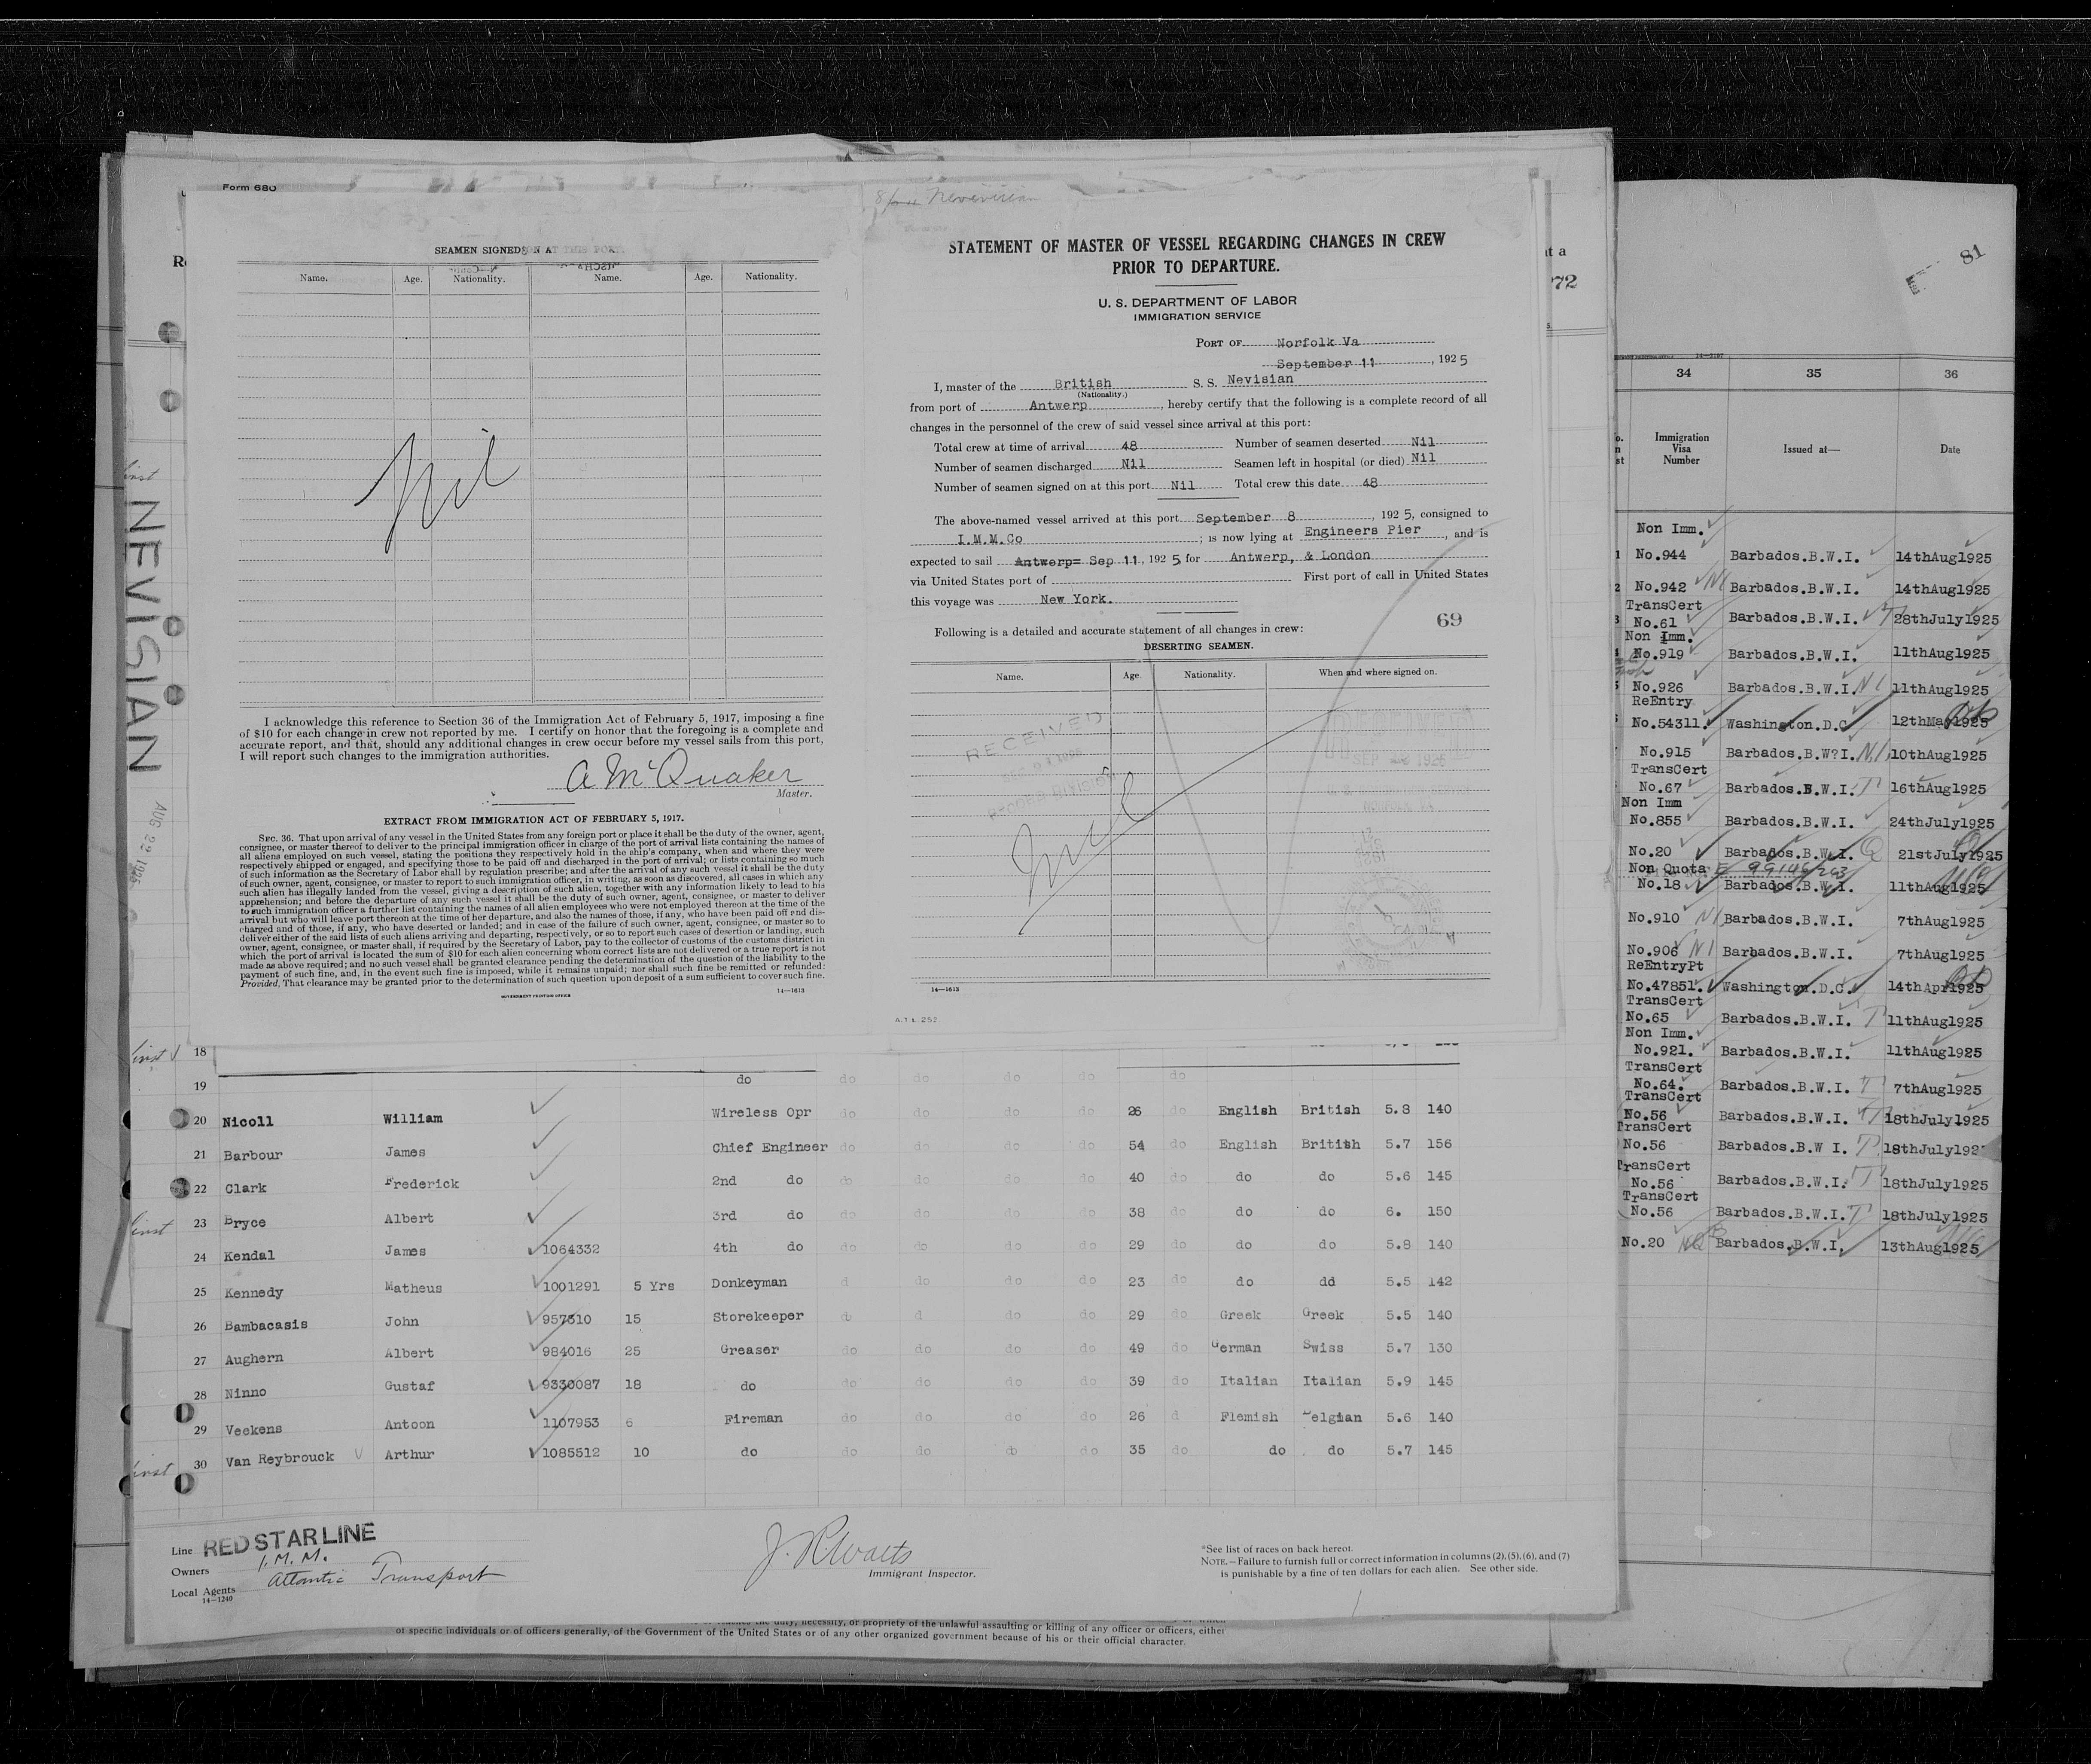 Form 680
SEAMEN SIGNED ON AT THIS PORT.
Name. Age. Nationality. Name. Age. Nationality.
Nil
I acknowledge this reference to Section 36 of the Immigration Act of February 5, 1917, imposing a fine
of $10 for each change in crew not reported by me. I certify on honor that the foregoing is a complete and
accurate report, and that, should any additional changes in crew occur before my vessel sails from this port,
I will report such changes to the immigration authorities.
A McQuaker
Master.
EXTRACT FROM IMMIGRATION ACT OF FEBRUARY 5, 1917.
SEC. 36. That upon arrival of any vessel in the United States from any foreign port or place it shall be the duty of the owner, agent,
consignee, or master thereof to deliver to the principal immigration officer in charge of the port of arrival lists containing the names of
all aliens employed on such vessel, stating the positions they respectively hold in the ship's company, when and where they were
respectively shipped or engaged, and specifying those to be paid off and discharged in the port of arrival; or lists containing so much
of such information as the Secretary of Labor shall by regulation prescribe; and after the arrival of any such vessel it shall be the duty
of such owner, agent, consignee, or master to report to such immigration officer, in writing, as soon as discovered, all cases in which any
such alien has illegally landed from the vessel, giving a description of such alien, together with any information likely to lead to his
apprehension; and before the departure of any such vessel it shall be the duty of such owner, agent, consignee, or master to deliver
to such immigration officer a further list containing the names of all alien employees who were not employed thereon at the time of the
arrival but who will leave port thereon at the time of her departure, and also the names of those, if any, who have been paid off and dis-
charged and of those, if any, who have deserted or landed; and in case of the failure of such owner, agent, consignee, or master so to
deliver either of the said lists of such aliens arriving and departing, respectively, or so to report such cases of desertion or landing, such
owner, agent, consignee, or master shall, if required by the Secretary of Labor, pay to the collector of customs of the customs district in
which the port of arrival is located the sum of $10 for each alien concerning whom correct lists are not delivered or a true report is not
made as above required; and no such vessel shall be granted clearance pending the determination of the question of the liability to the
payment of such fine, and, in the event such fine is imposed, while it remains unpaid; nor shall such fine be remitted or refunded:
Provided, That clearance may be granted prior to the determination of such question upon deposit of a sum sufficient to cover such fine.
GOVERNMENT PRINTING OFFICE 14—1613
STATEMENT OF MASTER OF VESSEL REGARDING CHANGES IN CREW
PRIOR TO DEPARTURE.
U. S. DEPARTMENT OF LABOR
IMMIGRATION SERVICE
PORT OF Norfolk Va
September 11, 1925
I, master of the British S. S. Nevisian
(Nationality.)
from port of Antwerp, hereby certify that the following is a complete record of all
changes in the personnel of the crew of said vessel since arrival at this port:
Total crew at time of arrival 48 Number of seamen deserted Nil
Number of seamen discharged Nil Seamen left in hospital (or died) Nil
Number of seamen signed on at this port Nil Total crew this date 48
The above-named vessel arrived at this port September 8, 1925, consigned to
I.M.M.Co; is now lying at Engineers Pier, and is
expected to sail Antwerp= Sep 11, 1925 for Antwerp, & London
via United States port of First port of call in United States
this voyage was New York.
69
Following is a detailed and accurate statement of all changes in crew:
DESERTING SEAMEN.
Name. Age. Nationality. When and where signed on.
RECEIVED
RECORD DIVISION
Nil
14—1613
A.T.L. 252.
NEVISIAN
AUG 22 1925
18
19 do do do do do do
20 Nicoll William Wireless Opr do do do do 26 do English British 5.8 140
21 Barbour James Chief Engineer do do do do 54 do English Britith 5.7 156
22 Clark Frederick 2nd do do do do do 40 do do do 5.6 145
23 Bryce Albert 3rd do do do do do 38 do do do 6. 150
24 Kendal James 1064332 4th do do do do do 29 do do do 5.8 140
25 Kennedy Matheus 1001291 5 Yrs Donkeyman d do do do 23 do do dd 5.5 142
26 Bambacasis John 957510 15 Storekeeper do d do do 29 do Greek Greek 5.5 140
27 Aughern Albert 984016 25 Greaser do do do do 49 do German Swiss 5.7 130
28 Ninno Gustaf 9330087 18 do do do do do 39 do Italian Italian 5.9 145
29 Veckens Antoon 1107953 6 Fireman do do do do 26 d Flemish Belgian 5.6 140
30 Van Reybrouck Arthur 1085512 10 do do do do do 35 do do do 5.7 145
Line RED STAR LINE
Owners I. M. M.
Local Agents Atlantic Transport
14—1240
Immigrant Inspector.
*See list of races on back hereof.
NOTE.—Failure to furnish full or correct information in columns (2), (5), (6), and (7)
is punishable by a fine of ten dollars for each alien. See other side.
of specific individuals or of officers generally, of the Government of the United States or of any other organized government because of his or their official character.
81
34 35 36
Immigration Visa Number Issued at— Date
Non Imm.
No.944 Barbados.B.W.I. 14thAug1925
No.942 Barbados.B.W.I. 14thAug1925
TransCert
No.61 Barbados.B.W.I. 28thJuly1925
Non Imm.
No.919 Barbados.B.W.I. 11thAug1925
No.926 Barbados.B.W.I. 11thAug1925
ReEntry
No.54311. Washington.D.C 12thMay1925
No.915 Barbados.B.W?I. 10thAug1925
TransCert
No.67 Barbados.B.W.I. 16thAug1925
Non Imm
No.855 Barbados.B.W.I. 24thJuly1925
No.20 Barbados.B.W.I. 21stJuly1925
Non Quota
No.18 Barbados.B.W.I. 11thAug1925
No.910 Barbados.B.W.I. 7thAug1925
No.906 Barbados.B.W.I. 7thAug1925
ReEntryPt
No.47851. Washington.D.C. 14thApr1925
TransCert
No.65 Barbados.B.W.I. 11thAug1925
Non Imm.
No.921. Barbados.B.W.I. 11thAug1925
TransCert
No.64. Barbados.B.W.I. 7thAug1925
TransCert
No.56 Barbados.B.W.I. 18thJuly1925
TransCert
No.56 Barbados.B.W I. 18thJuly192
TransCert
No.56 Barbados.B.W.I. 18thJuly1925
TransCert
No.56 Barbados.B.W.I. 18thJuly1925
No.20 Barbados.B.W.I. 13thAug1925